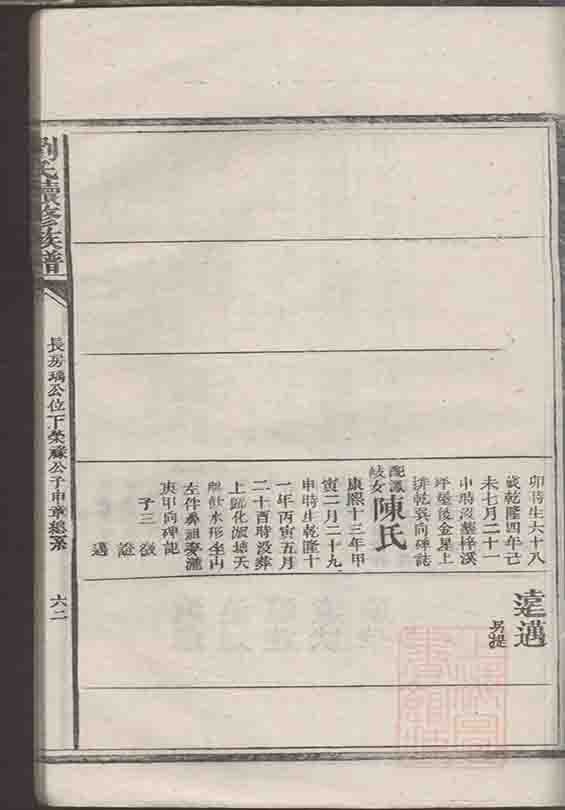 卯時生六十八
歲乾隆四年己
未七月二十一
申時沒葬梓溪
坪堡後金星上
排乾巽向碑誌
配譚
岐女
陳氏
康熙十三年甲
寅二月二十九
申時生乾隆十
一年丙寅五月
二十酉時沒葬
上瓻化淑塘天
水形坐山
左件鼻祖秦灘
庚甲向碑誌
子三
證
邁
邁
另提
劉氏續修族譜
長房瑀公位下榮祿公子申章總系
六二